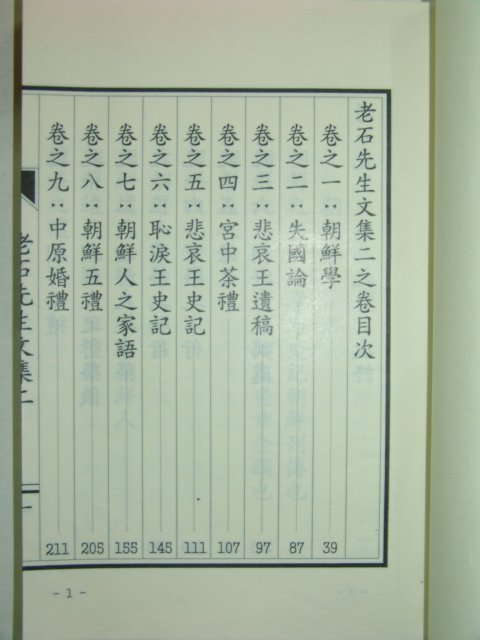 老石先生文集二之卷目次
卷之一 朝鮮學 39
卷之二 失國論 87
卷之三 悲哀王遺稿 97
卷之四 宮中茶禮 107
卷之五 悲哀王史記 111
卷之六 恥淚王史記 145
卷之七 朝鮮人之家語 155
卷之八 朝鮮五禮 205
卷之九 中原婚禮 211
老石先生文集二
一
- 1 -